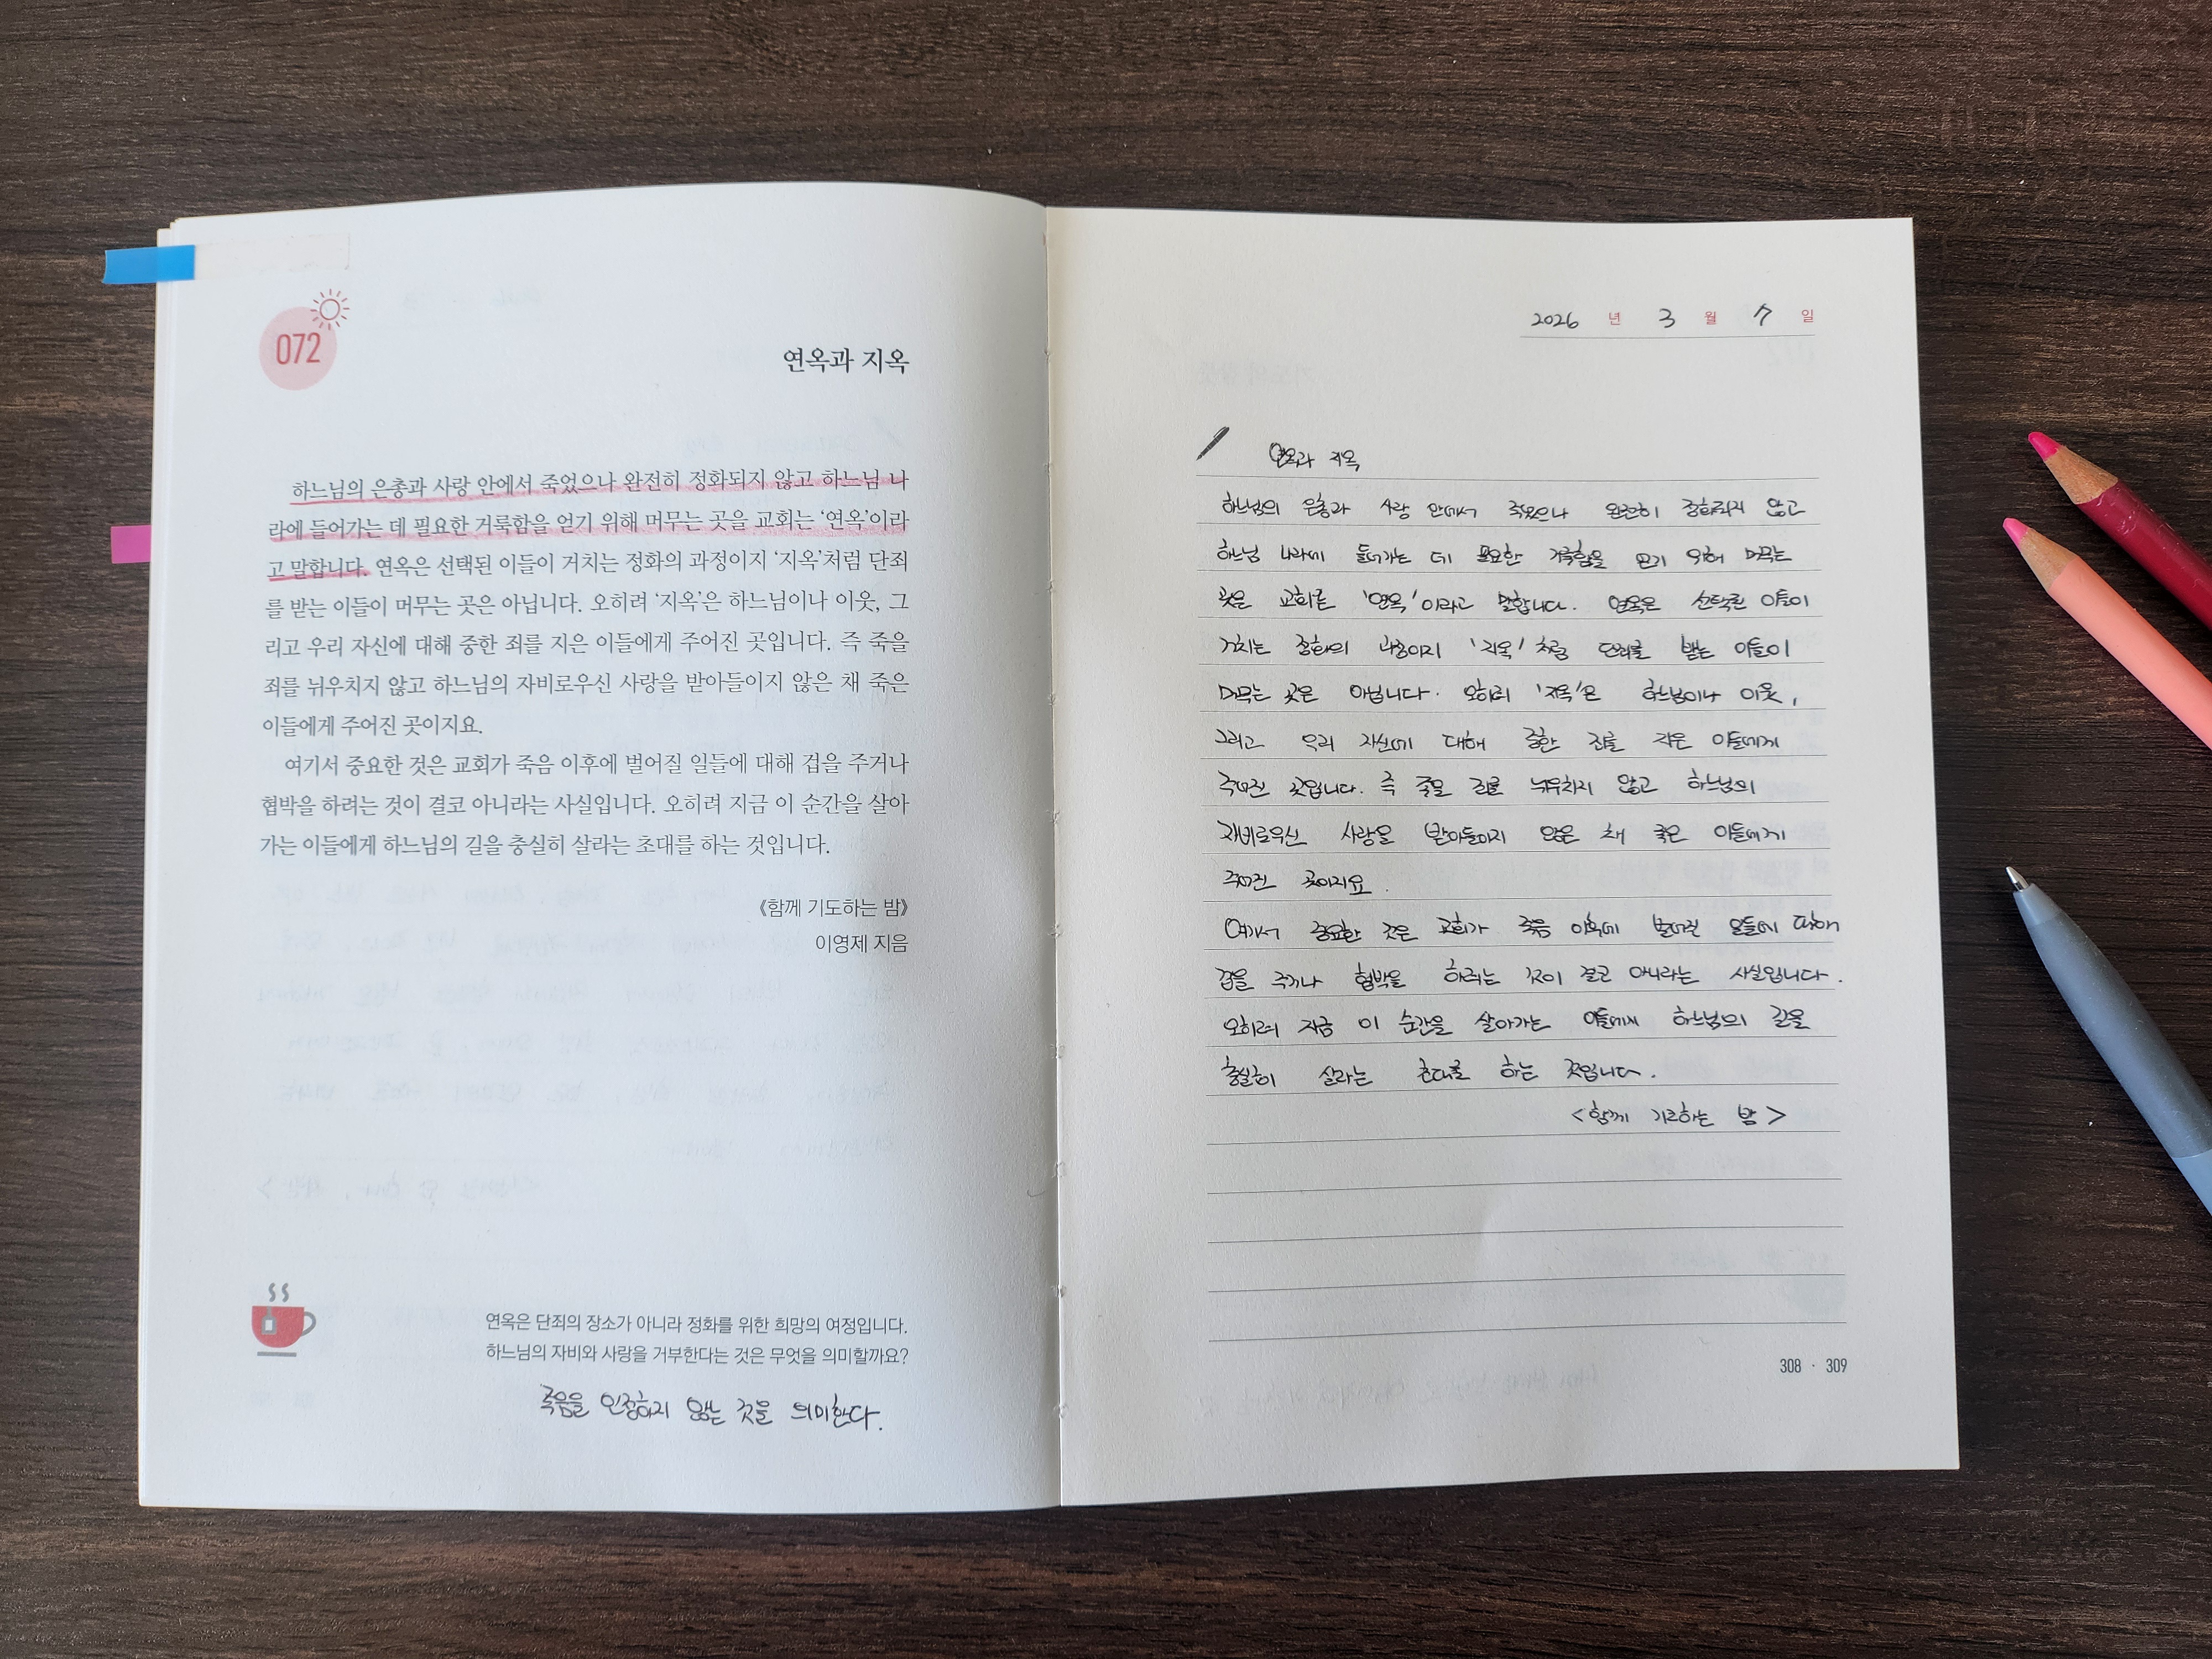 072
연옥과 지옥
하느님의 은총과 사랑 안에서 죽었으나 완전히 정화되지 않고 하느님 나
라에 들어가는 데 필요한 거룩함을 얻기 위해 머무는 곳을 교회는 ‘연옥’이라
고 말합니다. 연옥은 선택된 이들이 거치는 정화의 과정이지 ‘지옥’처럼 단죄
를 받는 이들이 머무는 곳은 아닙니다. 오히려 ‘지옥’은 하느님이나 이웃, 그
리고 우리 자신에 대해 중한 죄를 지은 이들에게 주어진 곳입니다. 즉 죽을
죄를 뉘우치지 않고 하느님의 자비로우신 사랑을 받아들이지 않은 채 죽은
이들에게 주어진 곳이지요.
여기서 중요한 것은 교회가 죽음 이후에 벌어질 일들에 대해 겁을 주거나
협박을 하려는 것이 결코 아니라는 사실입니다. 오히려 지금 이 순간을 살아
가는 이들에게 하느님의 길을 충실히 살라는 초대를 하는 것입니다.
《함께 기도하는 밤》
이영제 지음
연옥은 단죄의 장소가 아니라 정화를 위한 희망의 여정입니다.
하느님의 자비와 사랑을 거부한다는 것은 무엇을 의미할까요?
죽음을 인정하지 않는 것을 의미한다.
2026 년 3 월 7 일
연옥과 지옥
하느님의 은총과 사랑 안에서 죽었으나 완전히 정화되지 않고
하느님 나라에 들어가는 데 필요한 거룩함을 얻기 위해 머무는
곳을 교회는 '연옥'이라고 말합니다. 연옥은 선택된 이들이
거치는 정화의 과정이지 '지옥'처럼 단죄를 받는 이들이
머무는 곳은 아닙니다. 오히려 '지옥'은 하느님이나 이웃,
그리고 우리 자신에 대해 중한 죄를 지은 이들에게
주어진 곳입니다. 즉 죽을 죄를 뉘우치지 않고 하느님의
자비로우신 사랑을 받아들이지 않은 채 죽은 이들에게
주어진 곳이지요.
여기서 중요한 것은 교회가 죽음 이후에 벌어진 일들에 대해
겁을 주거나 협박을 하려는 것이 결코 아니라는 사실입니다.
오히려 지금 이 순간을 살아가는 이들에게 하느님의 길을
충실히 살라는 초대를 하는 것입니다.
<함께 기도하는 밤>
308 · 309